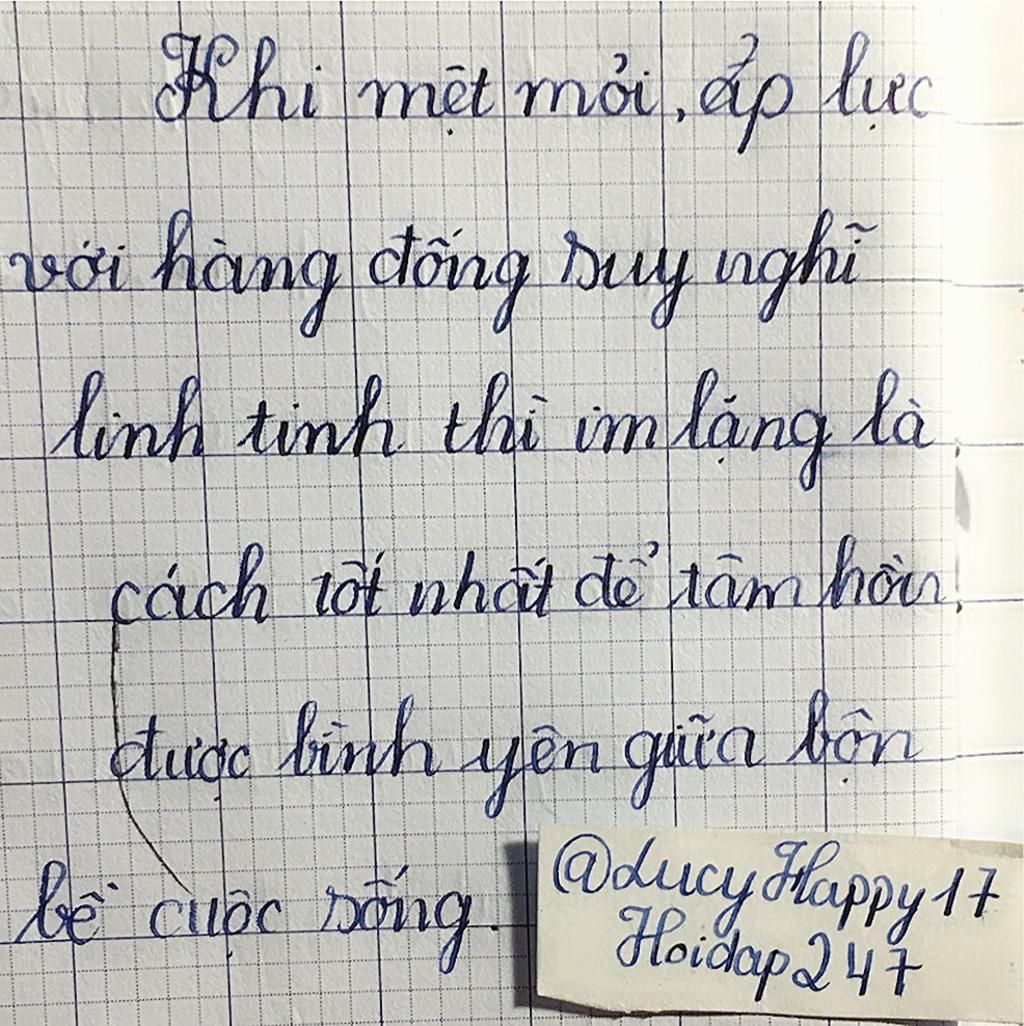 Khi mệt mỏi, ấp lực
với hàng đống suy nghĩ
linh tinh thì im lặng là
cách tốt nhất để tâm hồn
được bình yên giữa bộn
bề cuộc sống.
@LucyHappy17
Hoidap247